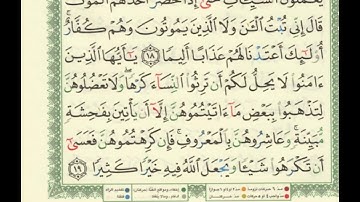 يَعْمَلُونَ ٱلسَّيِّـَٔاتِ حَتَّىٰٓ إِذَا حَضَرَ أَحَدَهُمُ ٱلْمَوْتُ
قَالَ إِنِّى تُبْتُ ٱلْـَٰٔنَ وَلَا ٱلَّذِينَ يَمُوتُونَ وَهُمْ كُفَّارٌ
أُو۟لَـٰٓئِكَ أَعْتَدْنَا لَهُمْ عَذَابًا أَلِيمًا ١٨ يَـٰٓأَيُّهَا ٱلَّذِينَ
ءَامَنُوا۟ لَا يَحِلُّ لَكُمْ أَن تَرِثُوا۟ ٱلنِّسَآءَ كَرْهًا ۖ وَلَا تَعْضُلُوهُنَّ
لِتَذْهَبُوا۟ بِبَعْضِ مَآ ءَاتَيْتُمُوهُنَّ إِلَّآ أَن يَأْتِينَ بِفَـٰحِشَةٍ
مُّبَيِّنَةٍ ۚ وَعَاشِرُوهُنَّ بِٱلْمَعْرُوفِ ۚ فَإِن كَرِهْتُمُوهُنَّ فَعَسَىٰٓ
أَن تَكْرَهُوا۟ شَيْـًٔا وَيَجْعَلَ ٱللَّهُ فِيهِ خَيْرًا كَثِيرًا ١٩